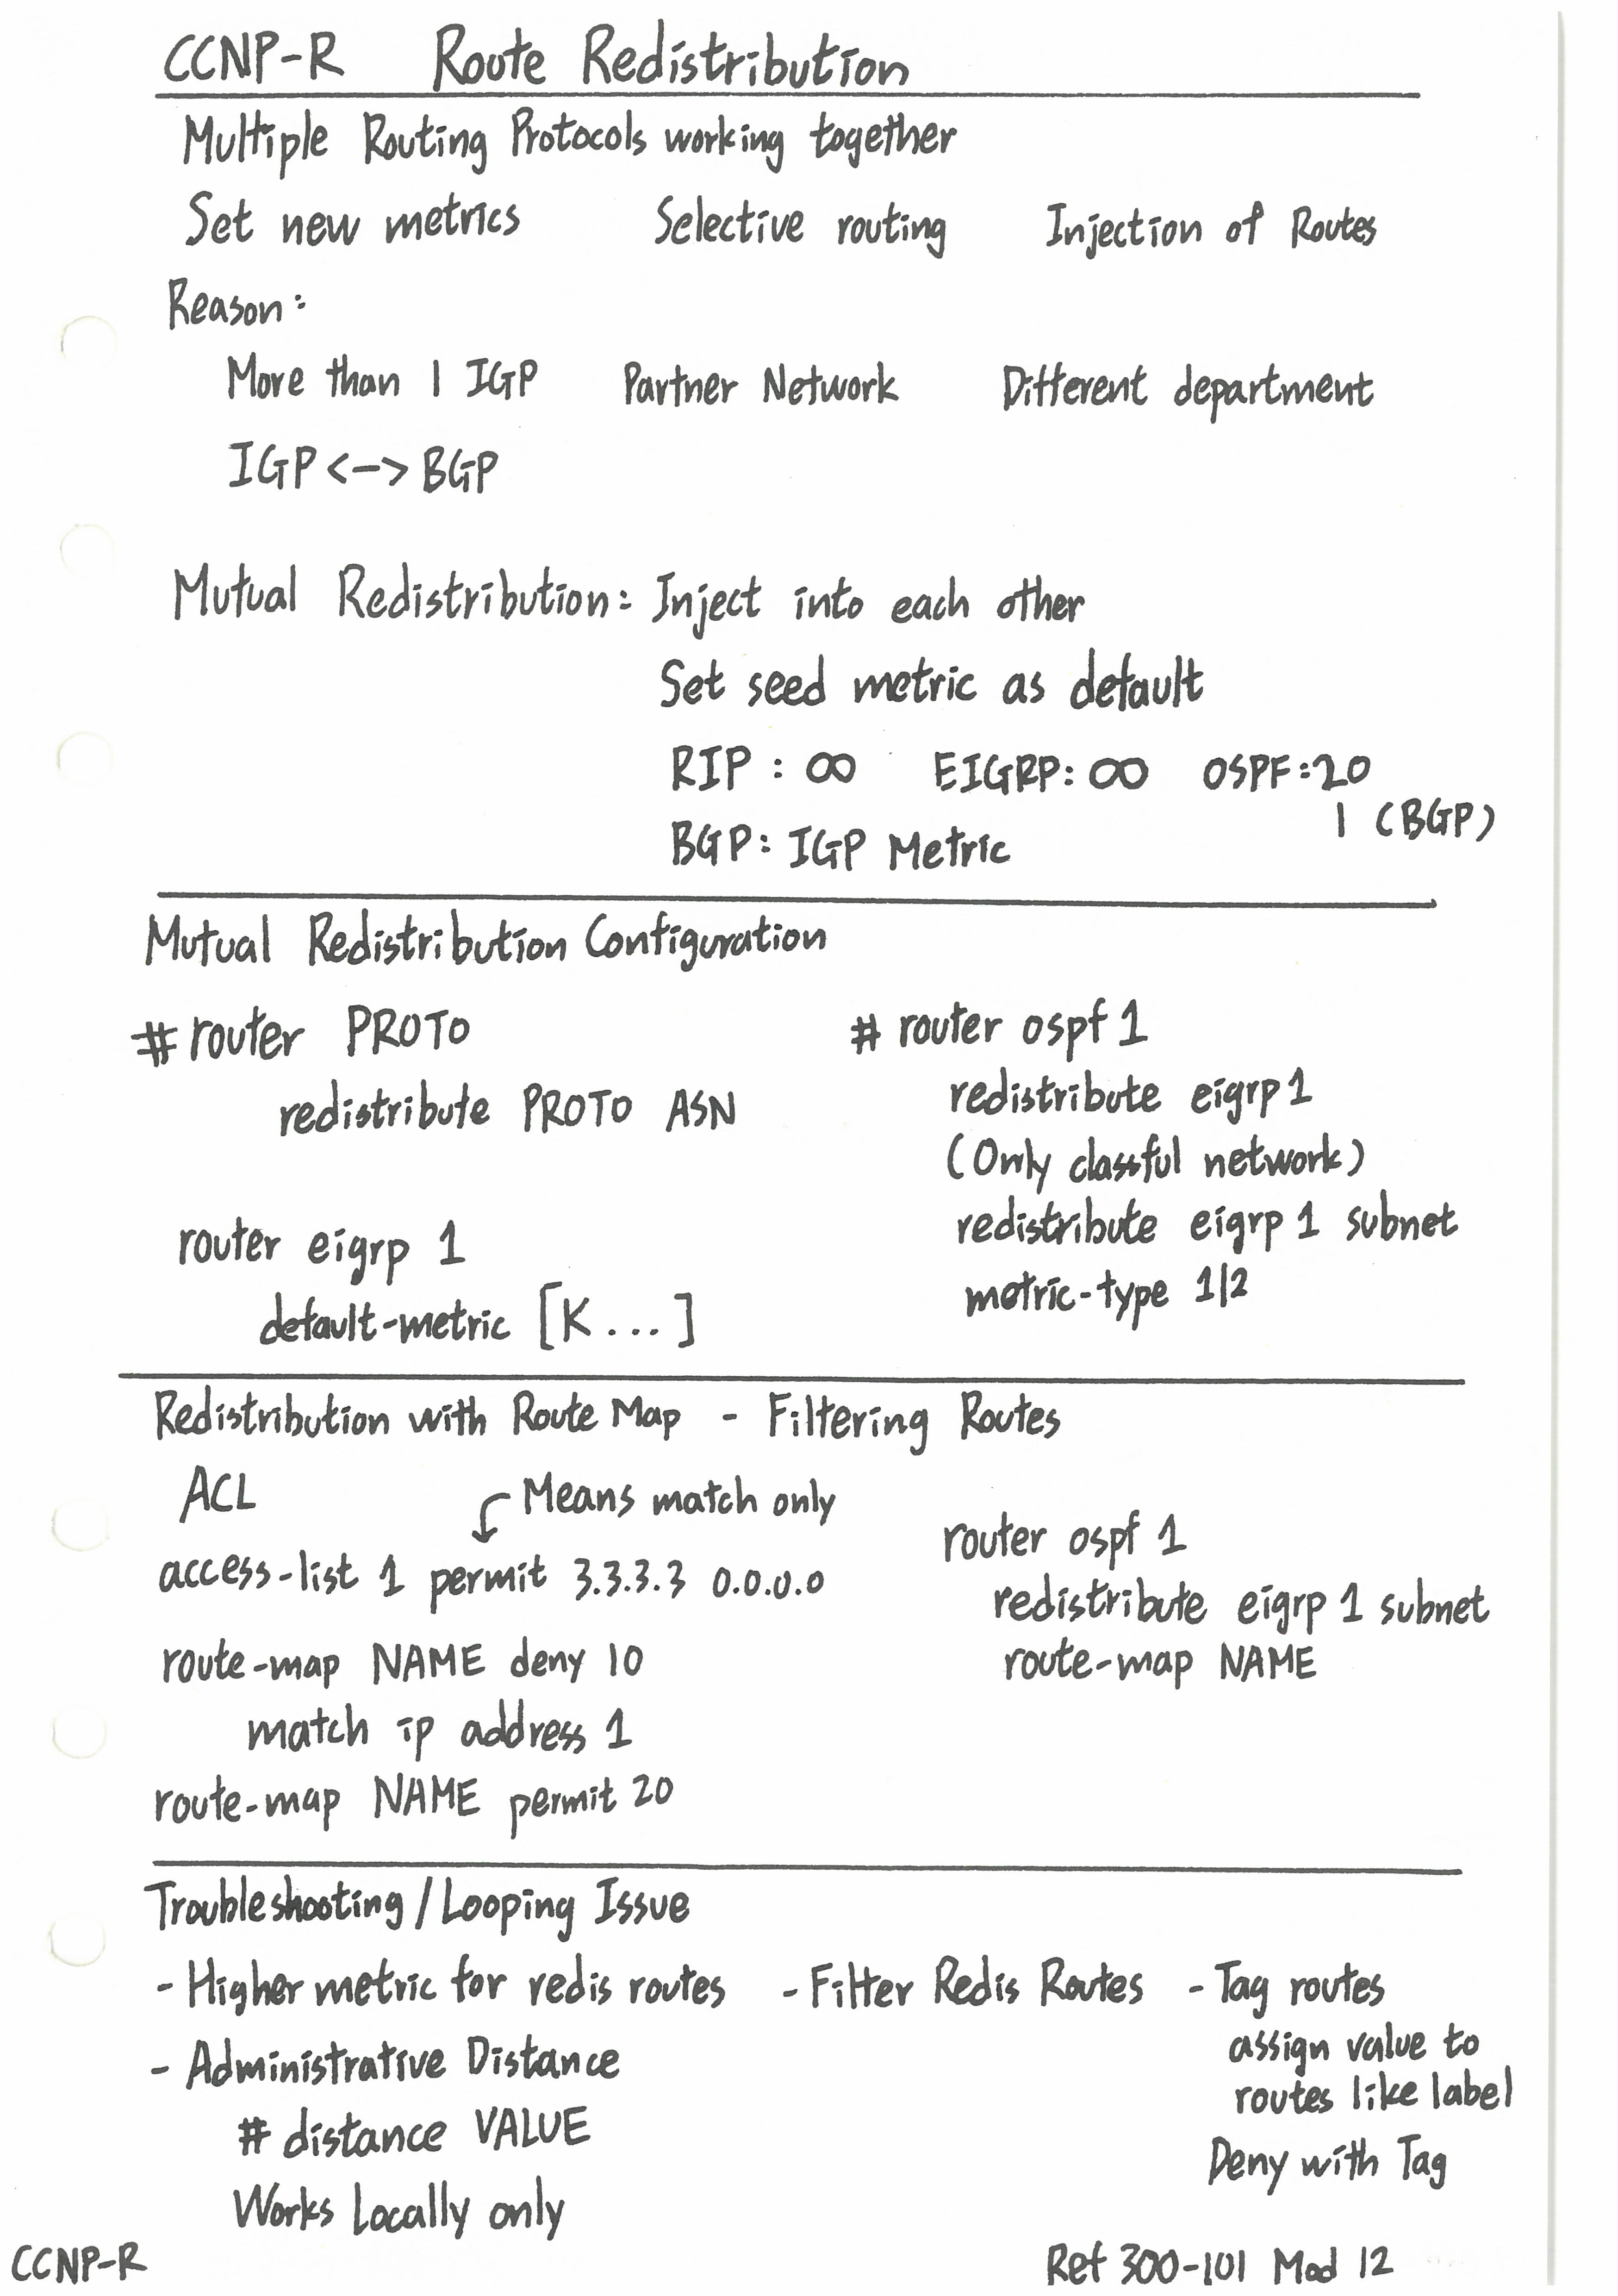 CCNP-R Route Redistribution
Multiple Routing Protocols working together
Set new metrics Selective routing Injection of Routes
Reason:
More than 1 IGP Partner Network Different department
IGP <-> BGP
Mutual Redistribution: Inject into each other
Set seed metric as default
RIP : ∞ EIGRP: ∞ OSPF: 20
1 (BGP)
BGP: IGP Metric
Mutual Redistribution Configuration
# router PROTO
redistribute PROTO ASN
router eigrp 1
default-metric [K ... ]
# router ospf 1
redistribute eigrp 1
(Only classful network)
redistribute eigrp 1 subnet
metric-type 1|2
Redistribution with Route Map - Filtering Routes
ACL
Means match only
access-list 1 permit 3.3.3.3 0.0.0.0
route-map NAME deny 10
match ip address 1
route-map NAME permit 20
router ospf 1
redistribute eigrp 1 subnet
route-map NAME
Troubleshooting / Looping Issue
- Higher metric for redis routes - Filter Redis Routes - Tag routes
assign value to
routes like label
Deny with Tag
- Administrative Distance
# distance VALUE
Works Locally only
CCNP-R Ref 300-101 Mod 12